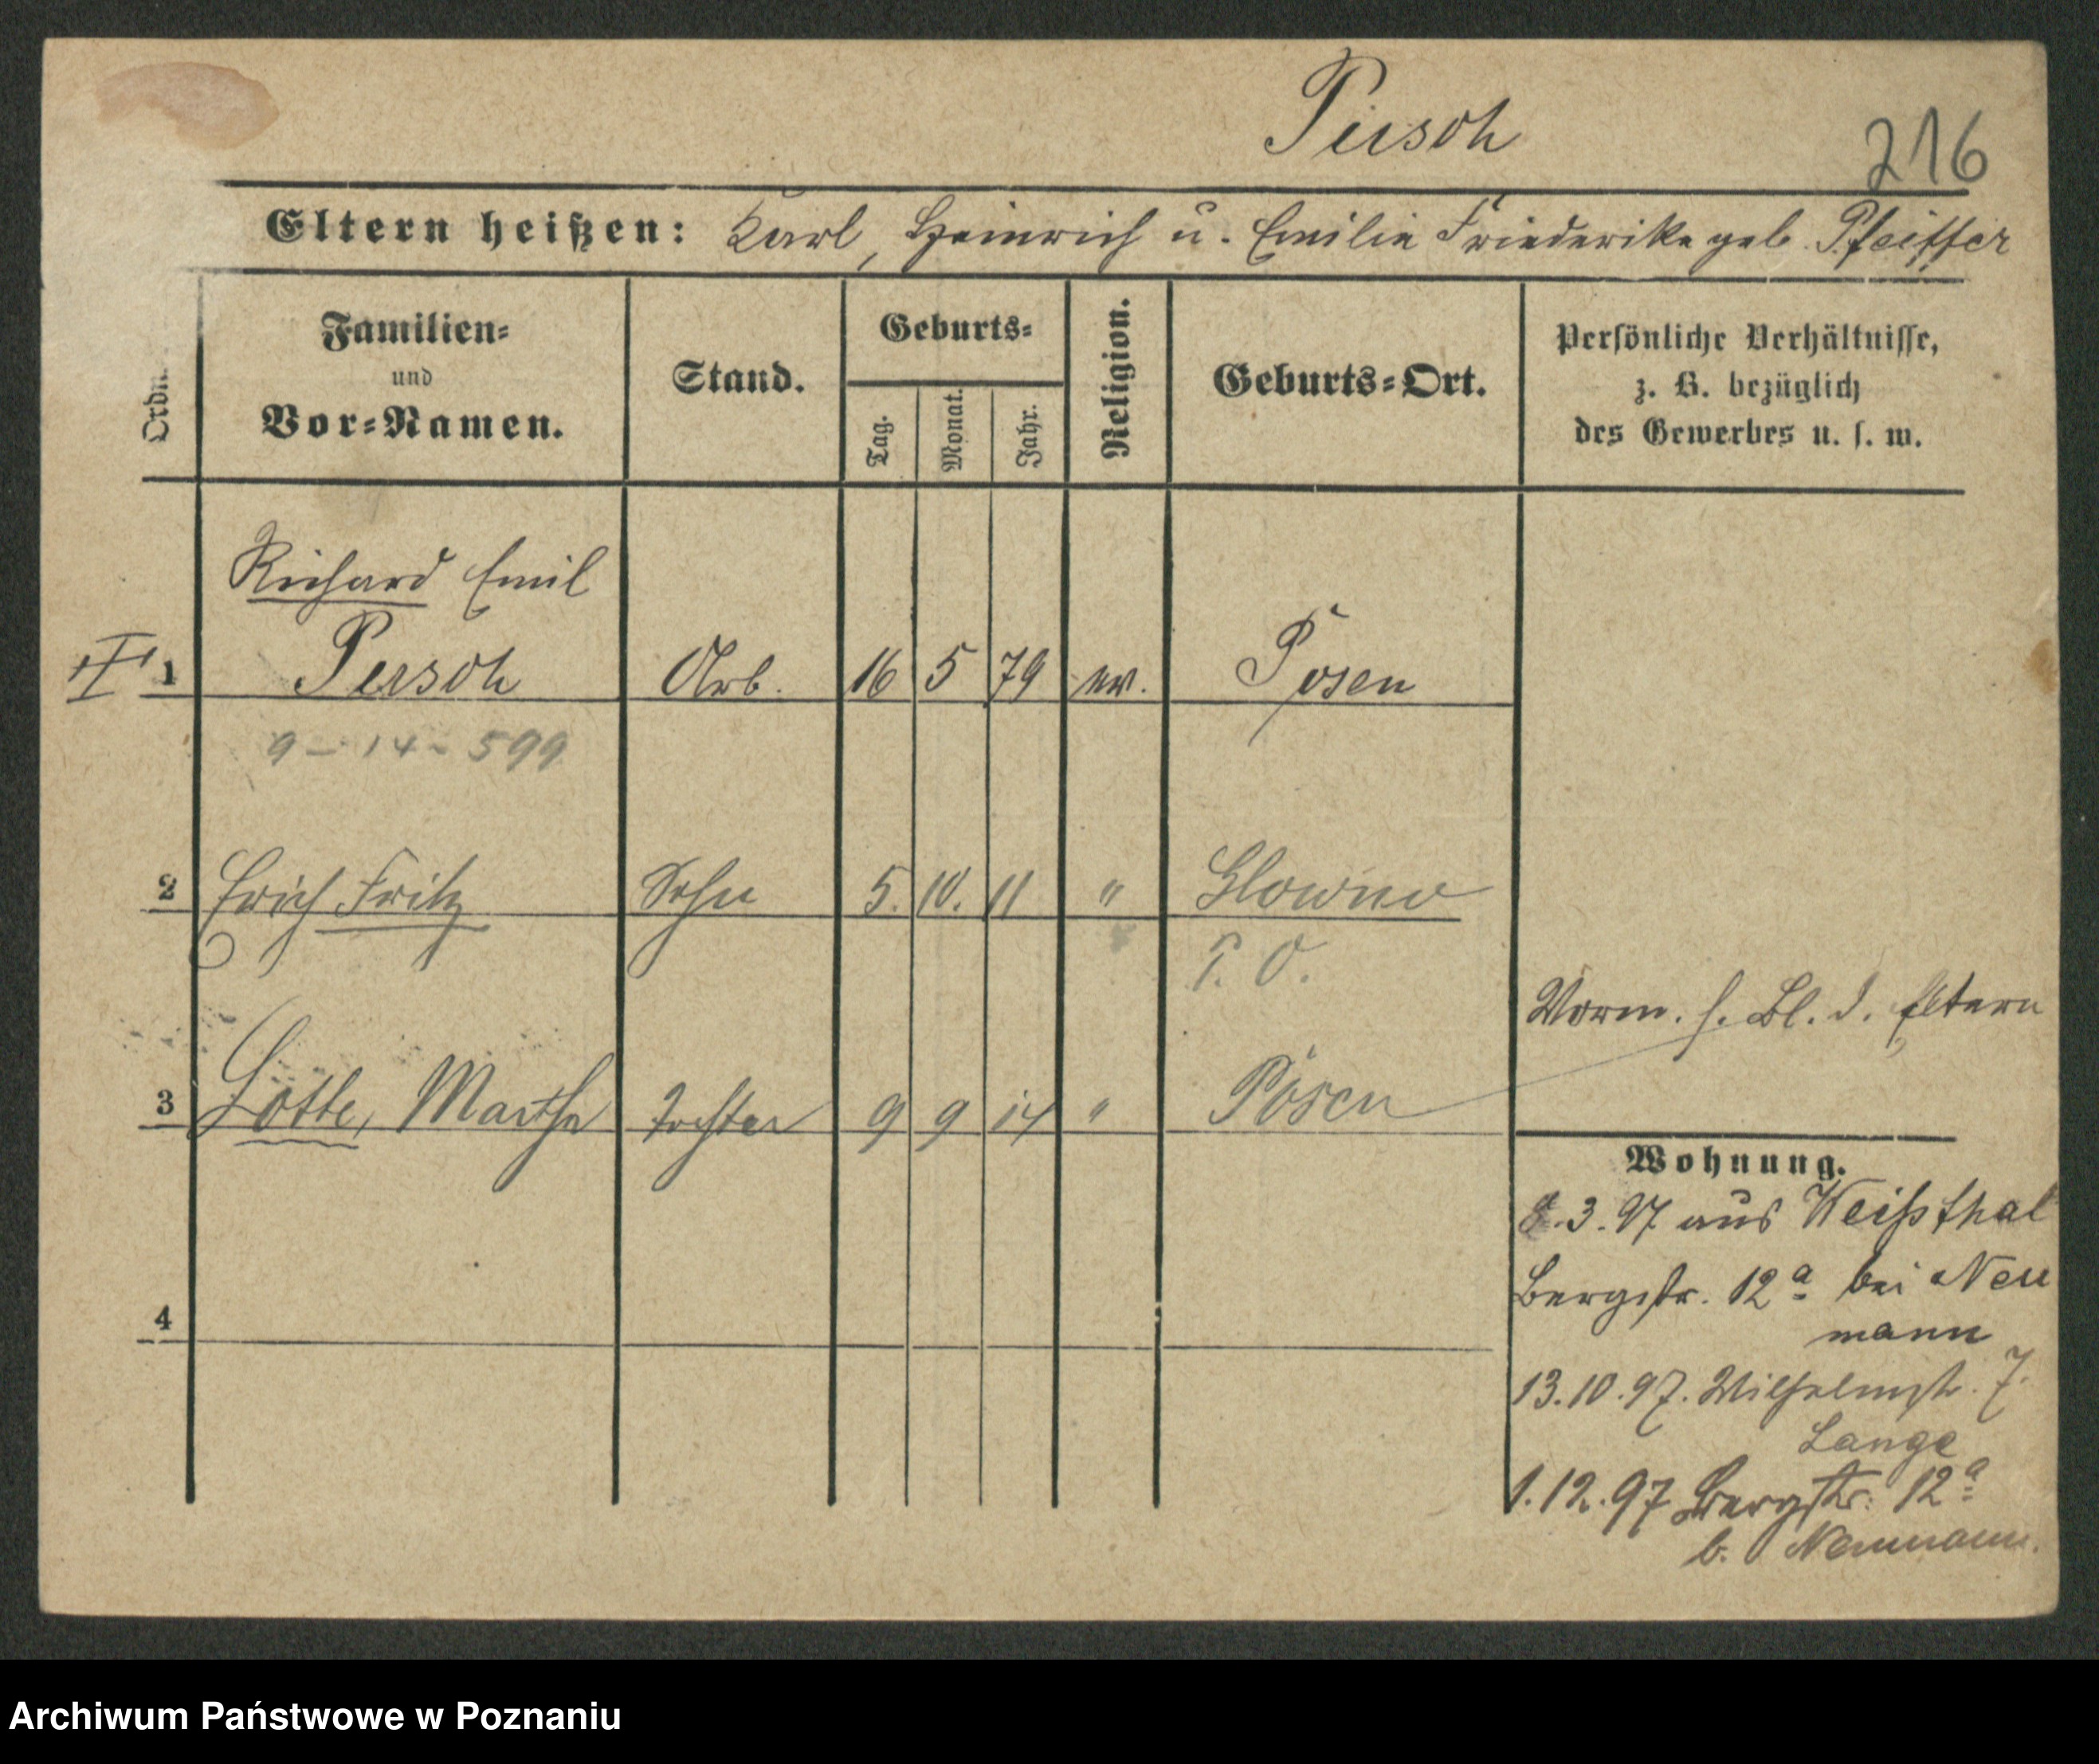 Persch
216
Eltern heißen: Karl, Heinrich u. Emilie Friederike geb. Pfeiffer
Ordn.
Familien-
und
Vor-Namen.
Stand.
Geburts-
Tag.
Monat.
Jahr.
Religion.
Geburts-Ort.
Persönliche Verhältnisse,
z. B. bezüglich
des Gewerbes u. s. w.
Richard Emil
1 Persch Arb. 16 5 79 ev. Posen
9-14-599
2 Erich Fritz Sohn 5. 10. 11 " Glowno
P. O.
Vorm. s. Bl. d. Eltern
3 Lotte, Martha Tochter 9 9 14 " Posen
4
Wohnung.
3.97 aus Weißthal
Bergstr. 12a bei Neu
mann
13.10.97. Wilhelmstr. 7.
Lange
1.12.97 Bergstr. 12a
b. Neumann.
Archiwum Państwowe w Poznaniu